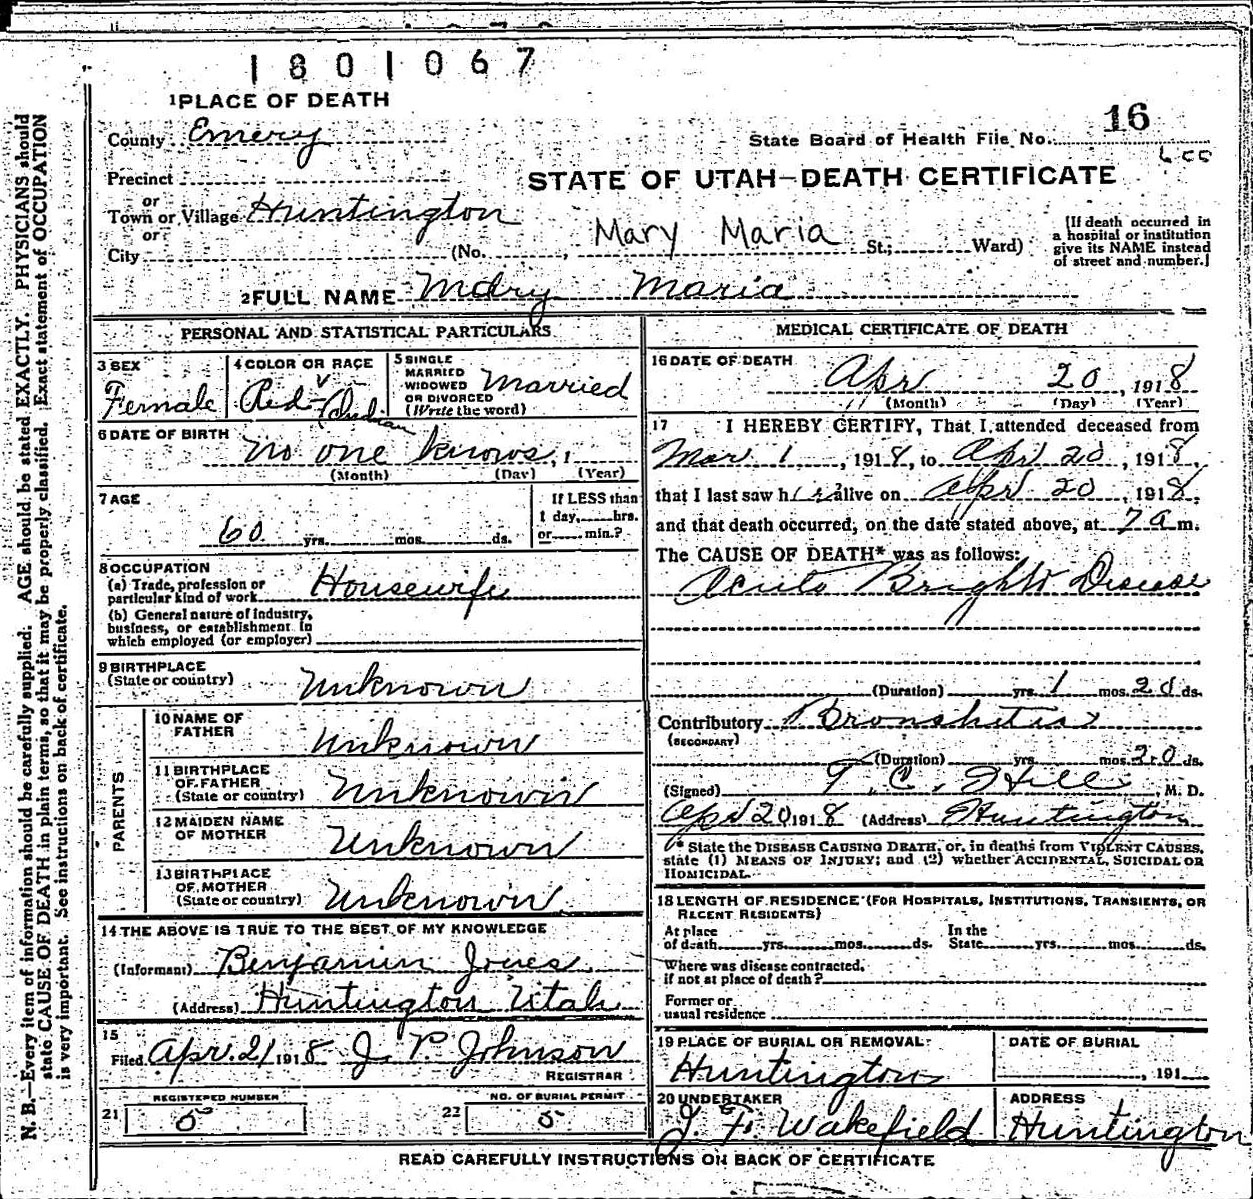 1801067
1 PLACE OF DEATH
16
County Emery
State Board of Health File No.
Precinct
STATE OF UTAH—DEATH CERTIFICATE
or
Town or Village Huntington
or
City (No. , Mary Maria St.; Ward)
[If death occurred in
a hospital or institution
give its NAME instead
of street and number.]
2 FULL NAME Mary Maria
PERSONAL AND STATISTICAL PARTICULARS
3 SEX
Female
4 COLOR OR RACE
Red-Indian
5 SINGLE
MARRIED
WIDOWED
OR DIVORCED
(Write the word)
Married
6 DATE OF BIRTH
No one knows, 1
(Month) (Day) (Year)
7 AGE
60 yrs. mos. ds.
If LESS than
1 day, hrs.
or min.?
8 OCCUPATION
(a) Trade, profession or
particular kind of work Housewife
(b) General nature of industry,
business, or establishment in
which employed (or employer)
9 BIRTHPLACE
(State or country) Unknown
PARENTS
10 NAME OF
FATHER Unknown
11 BIRTHPLACE
OF FATHER
(State or country) Unknown
12 MAIDEN NAME
OF MOTHER Unknown
13 BIRTHPLACE
OF MOTHER
(State or country) Unknown
14 THE ABOVE IS TRUE TO THE BEST OF MY KNOWLEDGE
(Informant) Benjamin Jones
(Address) Huntington Utah
15
Filed Apr. 21 1918 J. P. Johnson
REGISTRAR
21 REGISTERED NUMBER
5
22 NO. OF BURIAL PERMIT
5
MEDICAL CERTIFICATE OF DEATH
16 DATE OF DEATH
Apr 20, 1918
(Month) (Day) (Year)
17 I HEREBY CERTIFY, That I attended deceased from
Mar 1, 1918, to Apr 20, 1918,
that I last saw her alive on Apr 20, 1918,
and that death occurred, on the date stated above, at 7 a m.
The CAUSE OF DEATH* was as follows:
Acute Brights Disease
(Duration) yrs. 1 mos. 20 ds.
Contributory Bronshitis
(SECONDARY)
(Duration) yrs. mos. 20 ds.
(Signed) T. C. Hill, M. D.
Apr 20 1918 (Address) Huntington
* State the DISEASE CAUSING DEATH, or, in deaths from VIOLENT CAUSES,
state (1) MEANS OF INJURY; and (2) whether ACCIDENTAL, SUICIDAL OR
HOMICIDAL.
18 LENGTH OF RESIDENCE (FOR HOSPITALS, INSTITUTIONS, TRANSIENTS, OR
RECENT RESIDENTS)
At place In the
of death yrs. mos. ds. State yrs. mos. ds.
Where was disease contracted,
if not at place of death?
Former or
usual residence
19 PLACE OF BURIAL OR REMOVAL
Huntington
DATE OF BURIAL
, 191
20 UNDERTAKER
J. F. Wakefield
ADDRESS
Huntington
READ CAREFULLY INSTRUCTIONS ON BACK OF CERTIFICATE
N. B.—Every item of information should be carefully supplied. AGE should be stated EXACTLY. PHYSICIANS should
state CAUSE OF DEATH in plain terms, so that it may be properly classified. Exact statement of OCCUPATION
is very important. See instructions on back of certificate.